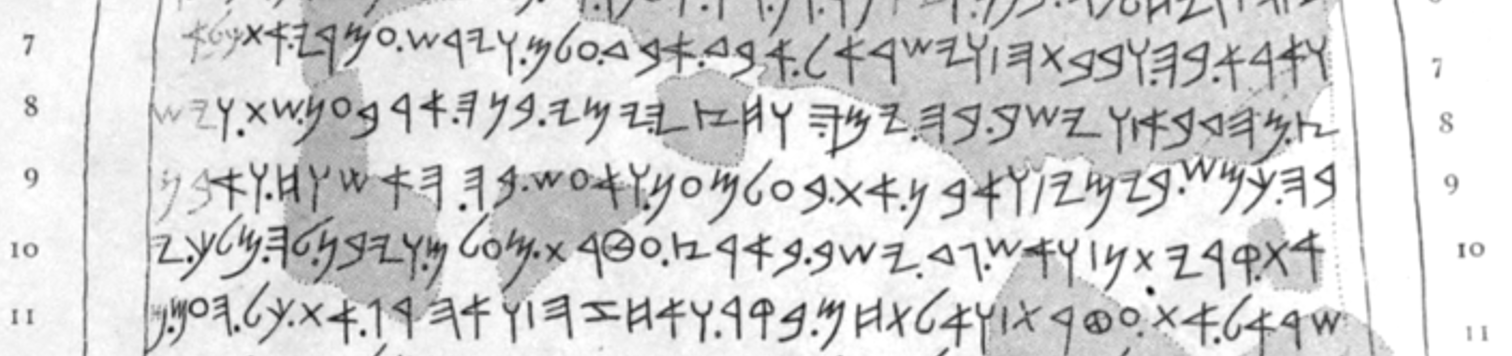 7 𐤅𐤀𐤓𐤀.𐤁𐤄.𐤅𐤁𐤁𐤕𐤄|𐤅𐤉𐤔𐤓𐤀𐤋.𐤀𐤁𐤃.𐤀𐤁𐤃.𐤏𐤋𐤌.𐤅𐤉𐤓𐤔.𐤏𐤌𐤓𐤉.𐤀𐤕 𐤊𐤋 𐤀 7
8 𐤑.𐤌𐤄𐤃𐤁𐤀|𐤅𐤉𐤔𐤁.𐤁𐤄.𐤉𐤌𐤄 𐤅𐤇𐤑𐤉 𐤉𐤌𐤉.𐤁𐤍𐤄.𐤀𐤓𐤁𐤏𐤍.𐤔𐤕.𐤅𐤉𐤔 8
9 𐤁𐤄.𐤊𐤌𐤔.𐤁𐤉𐤌𐤉|𐤅𐤀𐤁𐤍.𐤀𐤕.𐤁𐤏𐤋𐤌𐤏𐤍.𐤅𐤀𐤏𐤔.𐤁𐤄.𐤄𐤀𐤔𐤅𐤇.𐤅𐤀𐤁𐤍 9
10 𐤀𐤕.𐤒𐤓𐤉𐤕𐤍|𐤅𐤀𐤔.𐤂𐤃.𐤉𐤔𐤁.𐤁𐤀𐤓𐤑.𐤏𐤈𐤓𐤕.𐤌𐤏𐤋𐤌.𐤅𐤉𐤁𐤍.𐤋𐤄.𐤌𐤋𐤊.𐤉 10
11 𐤔𐤓𐤀𐤋.𐤀𐤕.𐤏𐤈𐤓𐤕|𐤅𐤀𐤋𐤕𐤇𐤌.𐤁𐤒𐤓.𐤅𐤀𐤇𐤆𐤄|𐤅𐤀𐤄𐤓𐤂.𐤀𐤕.𐤊𐤋.𐤄𐤏𐤌.𐤌 11